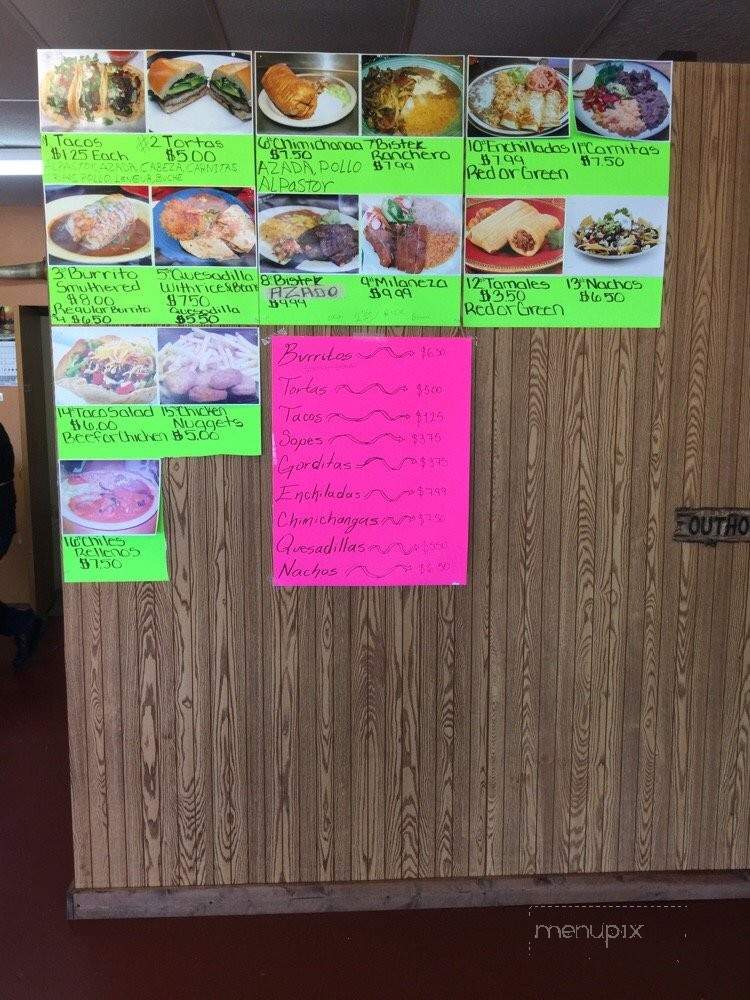 1 Tacos
$1.25 Each
#2 Tortas
$5.00
ALPASTOR, AZADA, CABEZA, CARNITAS,
POLLO, LENGUA, BUCHE
6# Chimichanga
$7.50
AZADA, POLLO
ALPastor
7# Bistek
Ranchero
$7.99
10# Enchilladas
$7.99
Red or Green
11# Carnitas
$7.50
3# Burrito
Smuthered
$8.00
Regular Burrito
#4 $6.50
5# Quesadilla
With rice & Beans
$7.50
Quesadilla
$5.50
8# Bistek
AZADO
$9.99
9# Milaneza
$9.99
12# Tamales
$3.50
Red or Green
13# Nachos
$6.50
14# Taco Salad
$6.00
Beef or Chicken
15# Chicken
Nuggets
$5.00
16# Chiles
Rellenos
$7.50
Burritos $6.50
Tortas $5.00
Tacos $1.25
Sopes $3.75
Gorditas $3.75
Enchiladas $7.99
Chimichangas $7.50
Quesadillas $5.50
Nachos $6.50
OUTHO
menupix